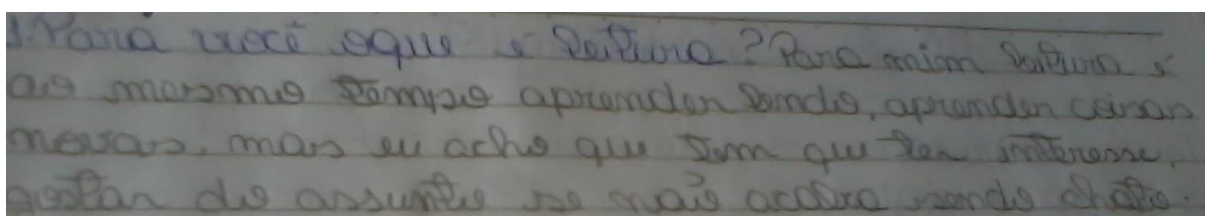 1. Para você oque é leitura? Para mim leitura é
ao mesmo tempo aprender lendo, aprender coisas
novas, mas eu acho que tem que ter interesse,
gostar do assunto se não acaba sendo chato.